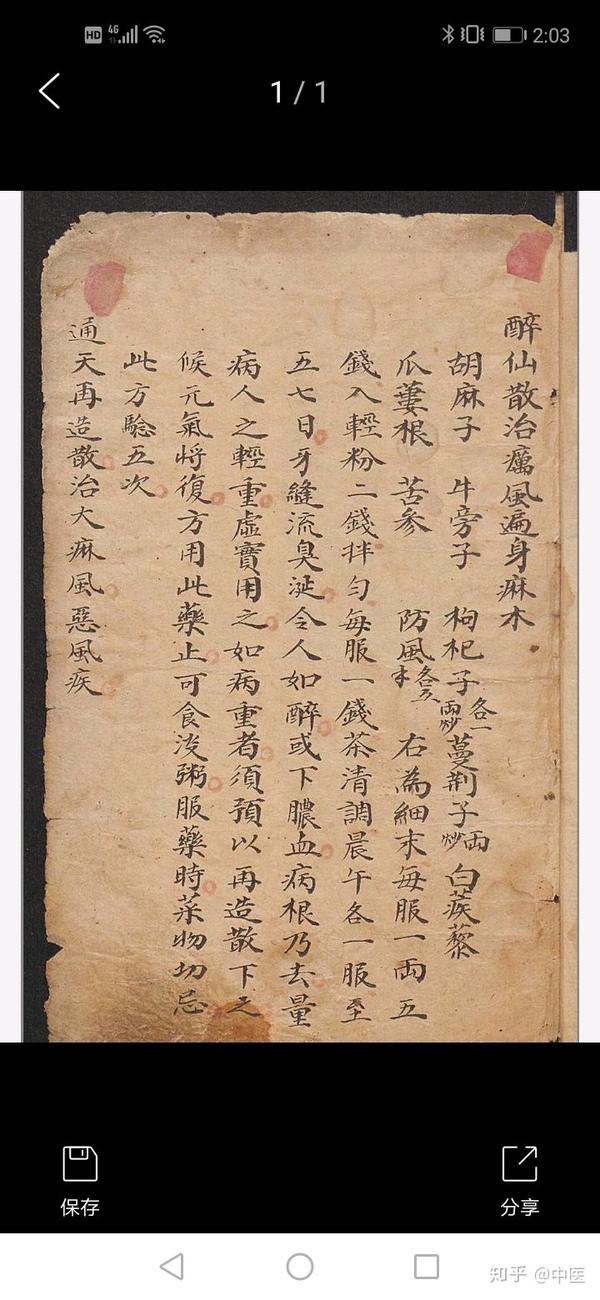 HD 4G 2:03
1 / 1
醉仙散治癘風遍身麻木
胡麻子 牛旁子 枸杞子各一兩炒蔓荆子一兩炒 白蒺藜
瓜蔞根 苦参 防風各五錢 右為細末每服一两五
錢入輕粉二錢拌匀每服一錢茶清調晨午各一服至
五七日牙縫流臭涎令人如醉或下膿血病根乃去量
病人之輕重虛實用之如病重者須預以再造散下之
候元氣将復方用此藥止可食淡粥服藥時菜物切忌
此方驗五次
通天再造散治大麻風惡風疾
保存
分享
知乎 @中医